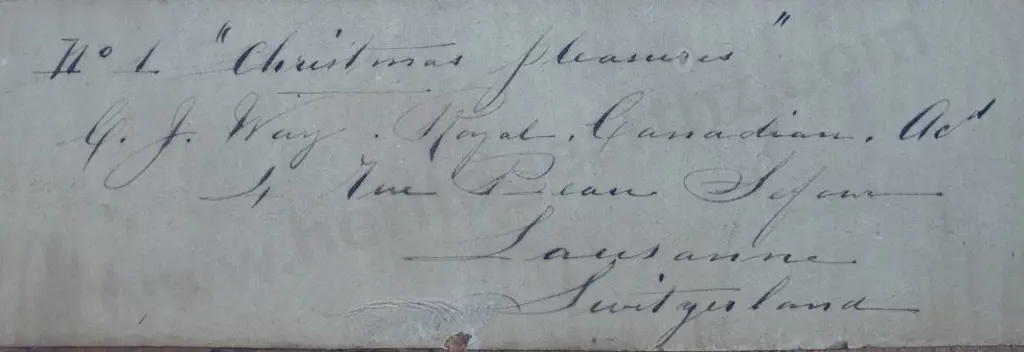 No 1 "Christmas pleasures"
C. J. Way. Royal. Canadian. Acd
4 Rue Beau Sejour
Lausanne
Switzerland